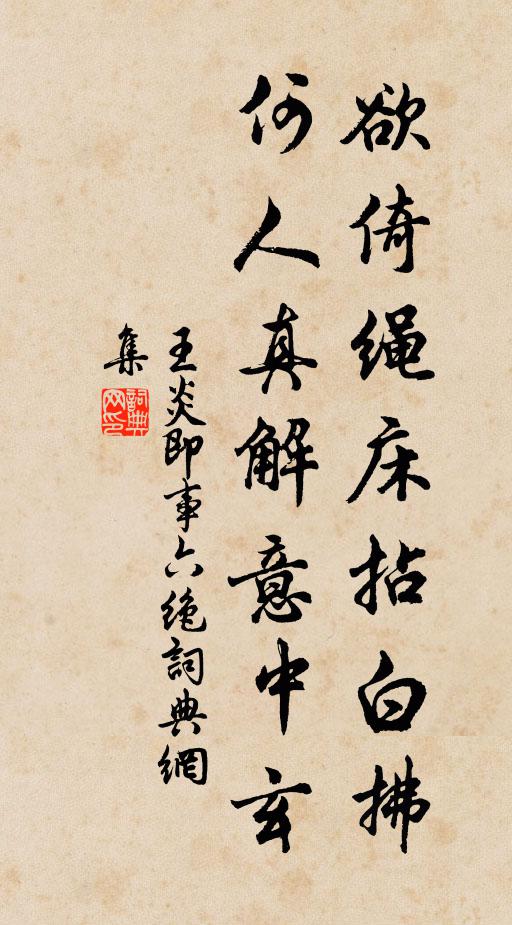 欲倚绳床拈白拂
何人真解意中玄
王炎即事六绝詞典網
集
詞典
网印